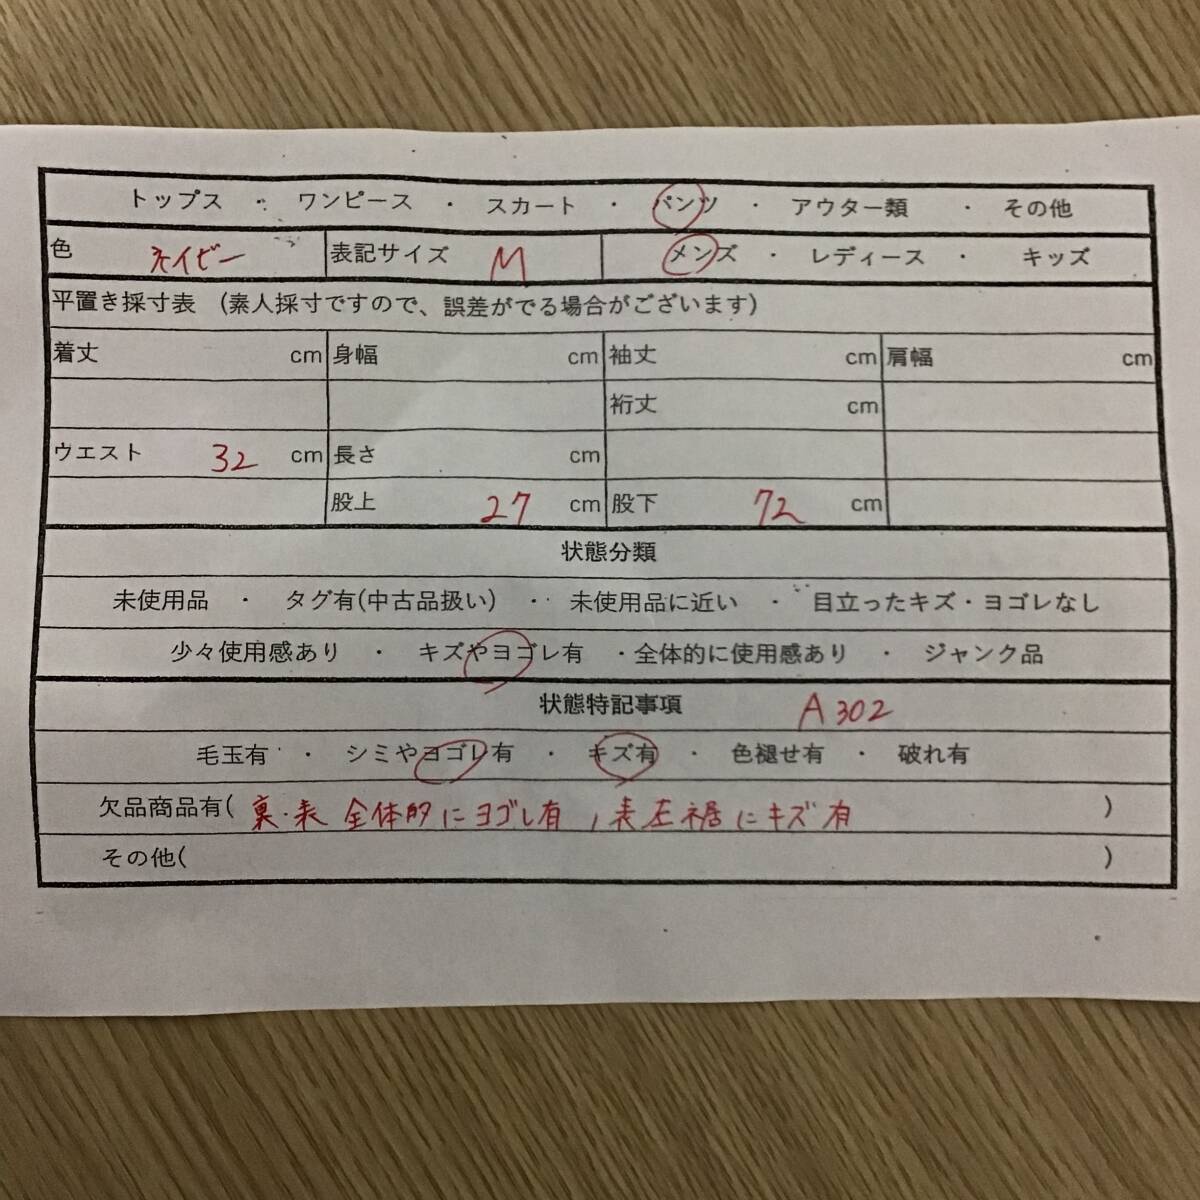 トップス ・ ワンピース ・ スカート ・ パンツ ・ アウター類 ・ その他
色 ネイビー 表記サイズ M メンズ ・ レディース ・ キッズ
平置き採寸表 (素人採寸ですので、誤差がでる場合がございます)
着丈 cm 身幅 cm 袖丈 cm 肩幅 cm
裄丈 cm
ウエスト 32 cm 長さ cm
股上 27 cm 股下 72 cm
状態分類
未使用品 ・ タグ有(中古品扱い) ・ 未使用品に近い ・ 目立ったキズ・ヨゴレなし
少々使用感あり ・ キズやヨゴレ有 ・全体的に使用感あり ・ ジャンク品
状態特記事項 A302
毛玉有 ・ シミやヨゴレ有 ・ キズ有 ・ 色褪せ有 ・ 破れ有
欠品商品有( 裏・表 全体的にヨゴレ有 , 表左裾にキズ有 )
その他( )